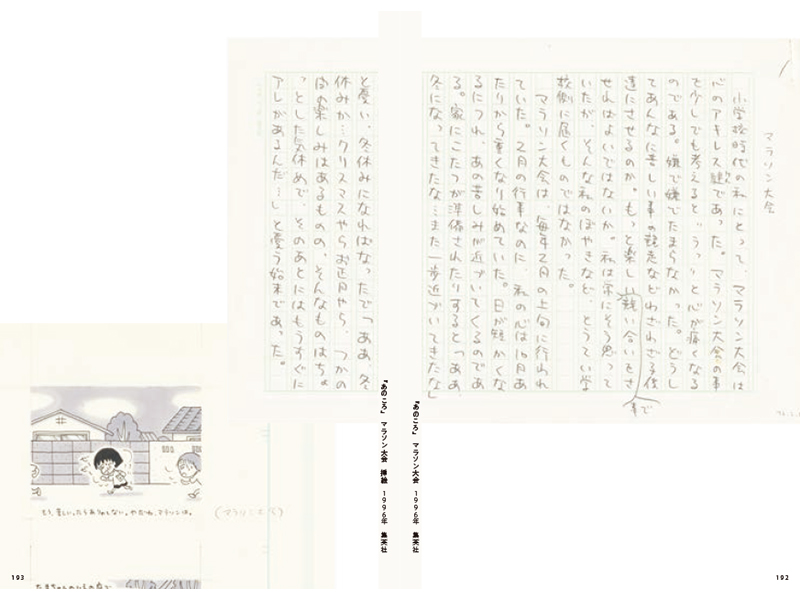 マラソン大会
小学校時代の私にとって、マラソン大会は
心のアキレス腱であった。マラソン大会の事
を少しでも考えると"うっ"と心が痛くなる
のである。嫌で嫌でたまらなかった。どうし
てあんなに苦しい事の競走などわざわざ子供
達にさせるのか。もっと楽しい事で競い合いをさ
せればよいではないか。私は常にそう思って
いたが、そんな私のぼやきなど、とうてい学
校側に届くものではなかった。
マラソン大会は、毎年2月の上旬に行われ
ていた。2月の行事なのに、私の心は10月あ
たりから重くなり始めていた。日が短かくな
るにつれ、あの苦しみが近づいてくるのであ
る。家にこたつが準備されたりすると「ああ
冬になってきたな…また一歩近づいてきたな」
と憂い、冬休みになればなったで「ああ、冬
休みか…クリスマスやらお正月やら、つかの
間の楽しみはあるものの、そんなものはちょ
っとした気休めで、そのあとにはもうすぐに
アレがあるんだ…」と憂う始末であった。
『あのころ』 マラソン大会 1996年 集英社
192
『あのころ』 マラソン大会 挿絵 1996年 集英社
(マラソン大会)
193